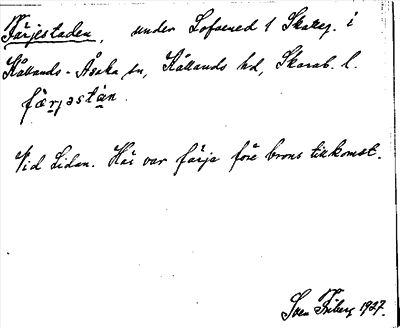 Färjestaden, under Lofsered 1 Skatteg. i
Kållands-Åsaka sn, Kållands hd, Skarab. l.
færjəstàn.
Vid Lidan. Här var färja före brons tillkomst.
Sven Friberg 1927.